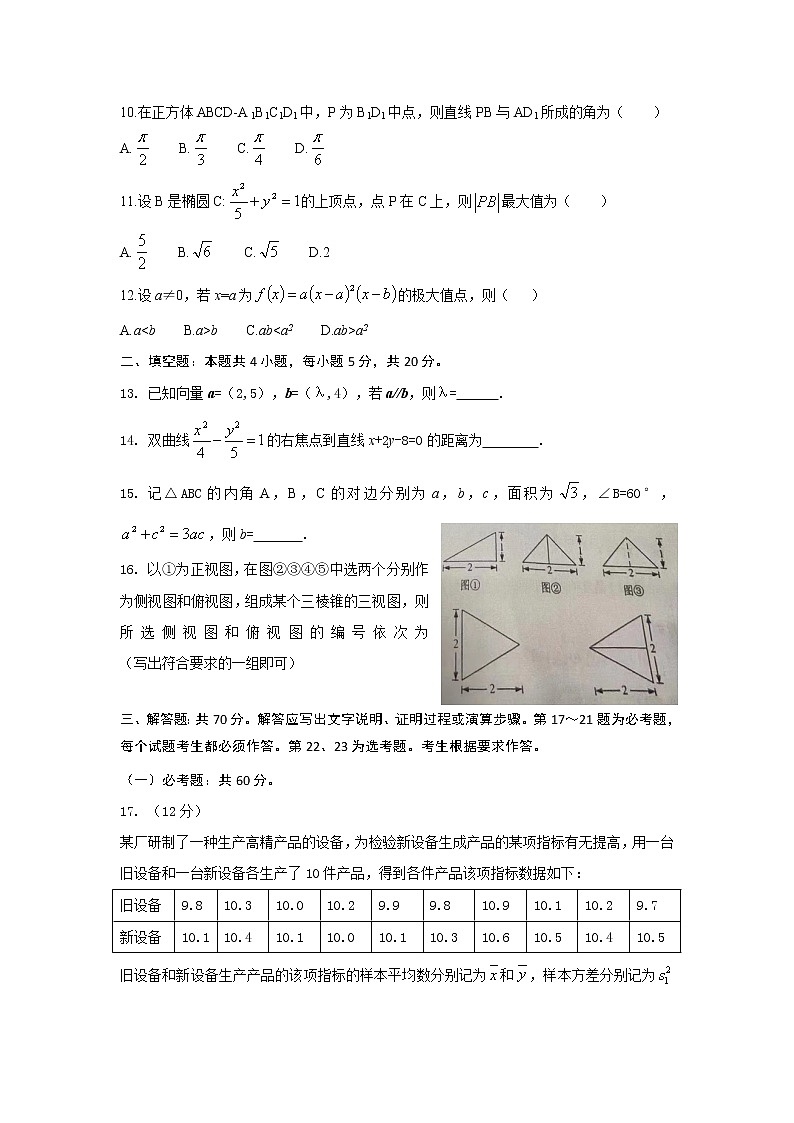 10.在正方体ABCD-A₁B₁C₁D₁中，P为B₁D₁中点，则直线PB与AD₁所成的角为（　　）
A. π/2　B. π/3　C. π/4　D. π/6
11.设B是椭圆C: x²/5+y²=1的上顶点，点P在C上，则|PB|最大值为（　　）
A. 5/2　B. √6　C. √5　D.2
12.设a≠0，若x=a为f(x)=a(x−a)²(x−b)的极大值点，则（　　）
A.a<b　B.a>b　C.ab<a²　D.ab>a²
二、填空题：本题共4小题，每小题5分，共20分。
13. 已知向量a=（2,5），b=（λ,4），若a//b，则λ=______.
14. 双曲线x²/4−y²/5=1的右焦点到直线x+2y-8=0的距离为________.
15. 记△ABC的内角A，B，C的对边分别为a，b，c，面积为√3，∠B=60°，
a²+c²=3ac，则b=_______.
16. 以①为正视图，在图②③④⑤中选两个分别作
为侧视图和俯视图，组成某个三棱锥的三视图，则
所选侧视图和俯视图的编号依次为
（写出符合要求的一组即可）
1 1 1
2 2 2
图① 图② 图③
2 2
2 2
三、解答题：共70分。解答应写出文字说明、证明过程或演算步骤。第17～21题为必考题，
每个试题考生都必须作答。第22、23为选考题。考生根据要求作答。
（一）必考题：共60分。
17. （12分）
某厂研制了一种生产高精产品的设备，为检验新设备生成产品的某项指标有无提高，用一台
旧设备和一台新设备各生产了10件产品，得到各件产品该项指标数据如下：
旧设备 9.8 10.3 10.0 10.2 9.9 9.8 10.9 10.1 10.2 9.7
新设备 10.1 10.4 10.1 10.0 10.1 10.3 10.6 10.5 10.4 10.5
旧设备和新设备生产产品的该项指标的样本平均数分别记为x̄和ȳ，样本方差分别记为s₁²